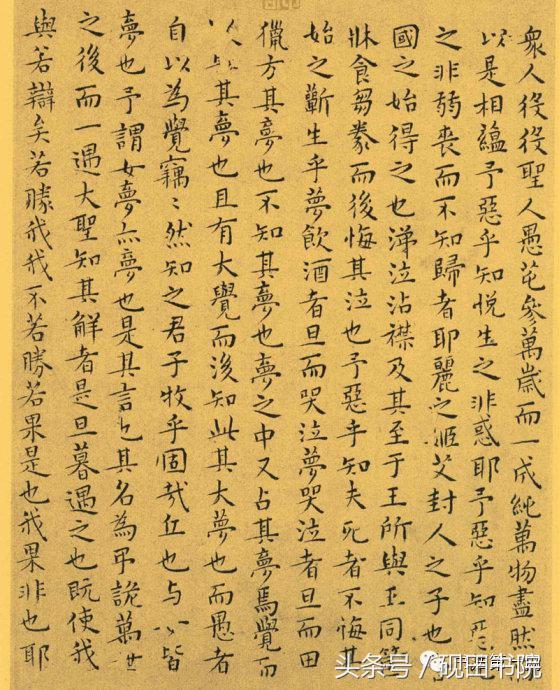 衆人役役聖人愚芚參萬歲而一成純萬物盡然
以是相蘊予惡乎知悅生之非惑耶予惡乎知惡
之非弱喪而不知歸者耶麗之姬艾封人之子也
國之始得之也涕泣沾襟及其至于王所與王同筐
牀食芻豢而後悔其泣也予惡乎知夫死者不悔其
始之蘄生乎夢飲酒者旦而哭泣夢哭泣者旦而田
獵方其夢也不知其夢也夢之中又占其夢焉覺而
其夢也且有大覺而後知此其大夢也而愚者
自以為覺竊〻然知之君子牧乎固哉丘也与皆
夢也予謂女夢亦夢也是其言也其名為弔詭萬世
之後而一遇大聖知其解者是旦暮遇之也既使我
與若辯矣若勝我我不若勝若果是也我果非也耶
头条号 / 砚田书院